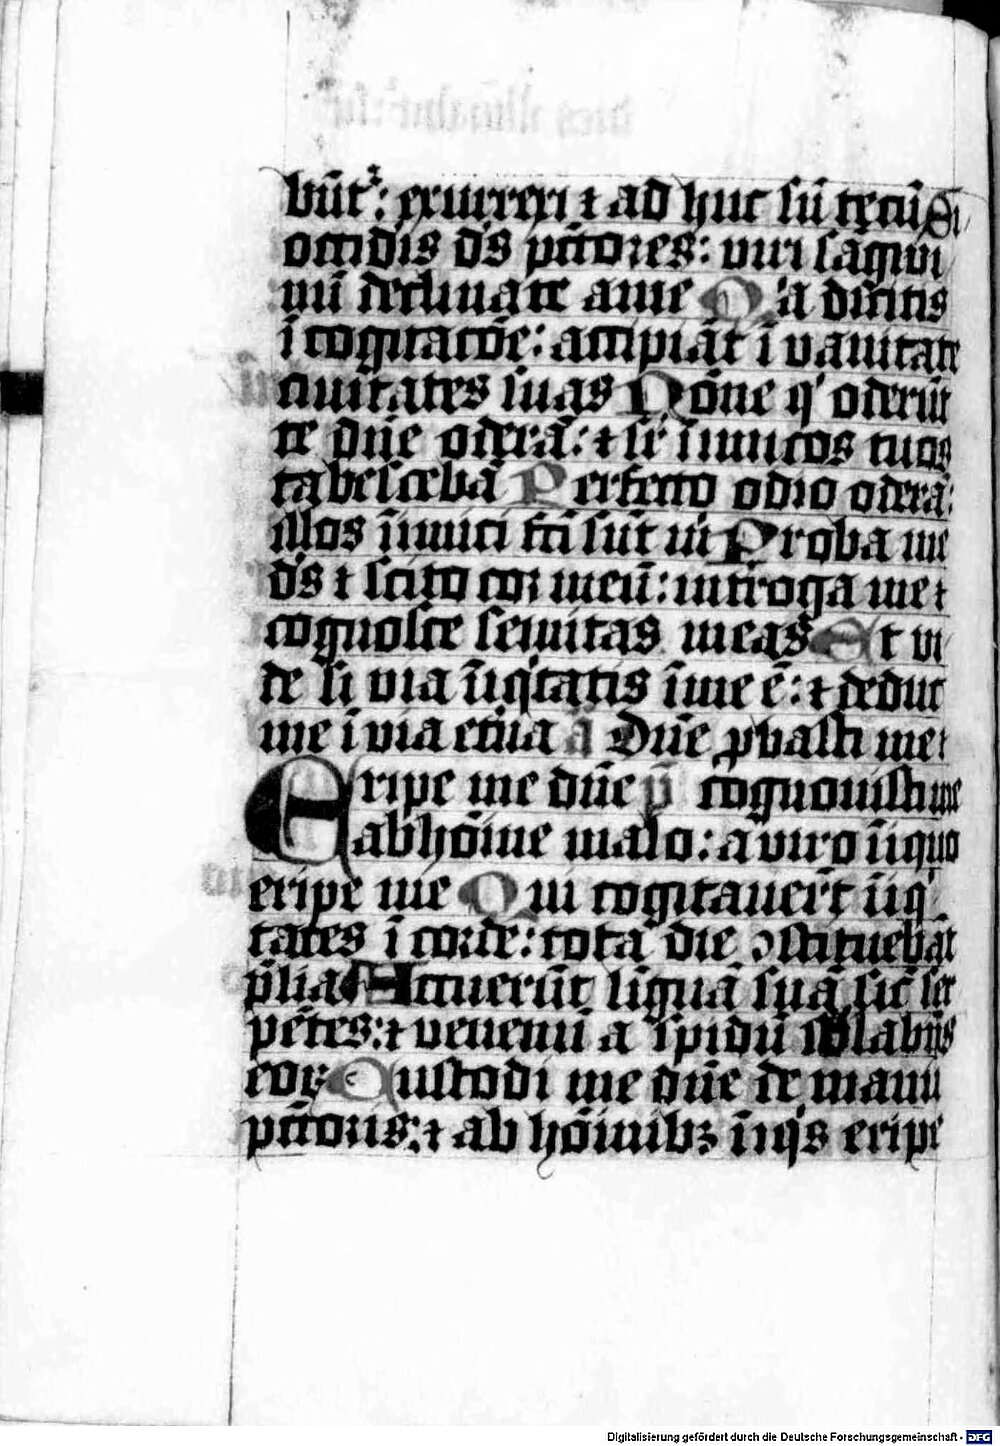 būtᷣ: exurrexi ⁊ ad huc sū tecū Si
occidis ds̄ pctōres: viri sāgwi
nū declinate a me Q'a dicitis
ī cogitacōe: accipiāt ī vanitate
civitates suas Nōne q' oderūt
te dn̄e oderā: ⁊ sr̄ inimicos tuos
tabescebā Perfecto odio oderā:
illos īimici fc̄i sūt m Proba me
ds̄ ⁊ scito cor meū: int̄roga me ⁊
cognosce semitas meas Et vi
de si via īiq'tatis ī me ē: ⁊ deduc
me ī via et̄na a Dn̄e ꝓbasti me ⁊
Eripe me dn̄e p̄ cognovisti me
ab hōīne malo: a viro īiquo
eripe me Qui cogitauer̄t īiq'
tates ī corde: tota die ↄstituebāt
p̄lia Acuerūt līguā suā sic̄ ser
pētes: ⁊ venenū aspidū sub labijs
eoꝝ Custodi me dn̄e de manu
pctōris: ⁊ ab hōīnibꝫ īiq's eripe
Digitalisierung gefördert durch die Deutsche Forschungsgemeinschaft - DFG